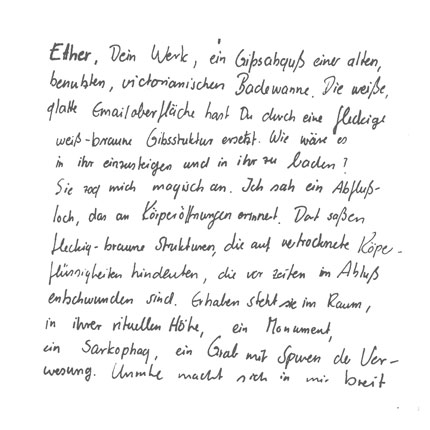 Ether, Dein Werk, ein Gipsabguß einer alten,
benutzten, victorianischen Badewanne. Die weiße,
glatte Emailoberfläche hast Du durch eine fleckige
weiß-braune Gibsstruktur ersetzt. Wie wäre es
in ihr einzusteigen und in ihr zu baden?
Sie zog mich magisch an. Ich sah ein Abfluß-
loch, das an Körperöffnungen erinnert. Dort saßen
fleckig-braune Strukturen, die auf vertrocknete Köpe-
flüssigkeiten hindeuten, die vor zeiten im Abfluß
entschwunden sind. Erhaben steht sie im Raum,
in ihrer rituellen Höhe, ein Monument,
ein Sarkophag, ein Grab mit Spuren der Ver-
wesung. Unruhe macht sich in mir breit